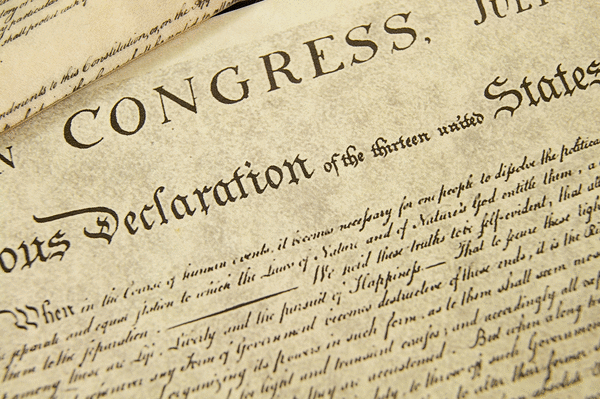 ndments to this Constitution, or, on the App
N CONGRESS, JUL
ous Declaration of the thirteen united States
When in the Course of human events, it becomes necessary for one people to dissolve the politica
separate and equal station to which the Laws of Nature and of Nature's God entitle them, a
them to the separation. We hold these truths to be self-evident, that al
among these are Life, Liberty and the pursuit of Happiness. — That to secure these righ
whenever any Form of Government becomes destructive of these ends, it is the Ri
organizing its powers in such form, as to them shall seem mos
for light and transient causes; and accordingly all exp
they are accustomed. But when a long
duty, to throw off such Government
to alter their former